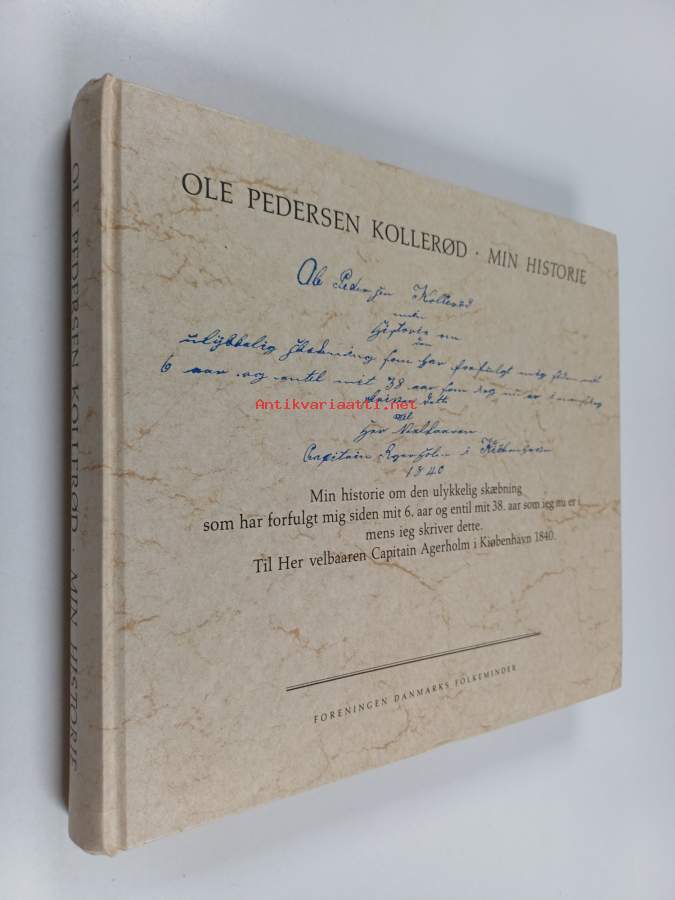 OLE PEDERSEN KOLLERØD · MIN HISTORIE
OLE PEDERSEN KOLLERØD · MIN HISTORIE
Ole Pedersen Kollerød
min
Historie om
ulykkelig som har forfulgt mig siden mit
6 aar og entil mit 38 aar som ieg nu er
dette
til
Her Velbaaren
Capitain Agerholm i Kiøbenhavn
1840
Antikvariaatti.net
Min historie om den ulykkelig skæbning
som har forfulgt mig siden mit 6. aar og entil mit 38. aar som ieg nu er i
mens ieg skriver dette.
Til Her velbaaren Capitain Agerholm i Kiøbenhavn 1840.
FORENINGEN DANMARKS FOLKEMINDER